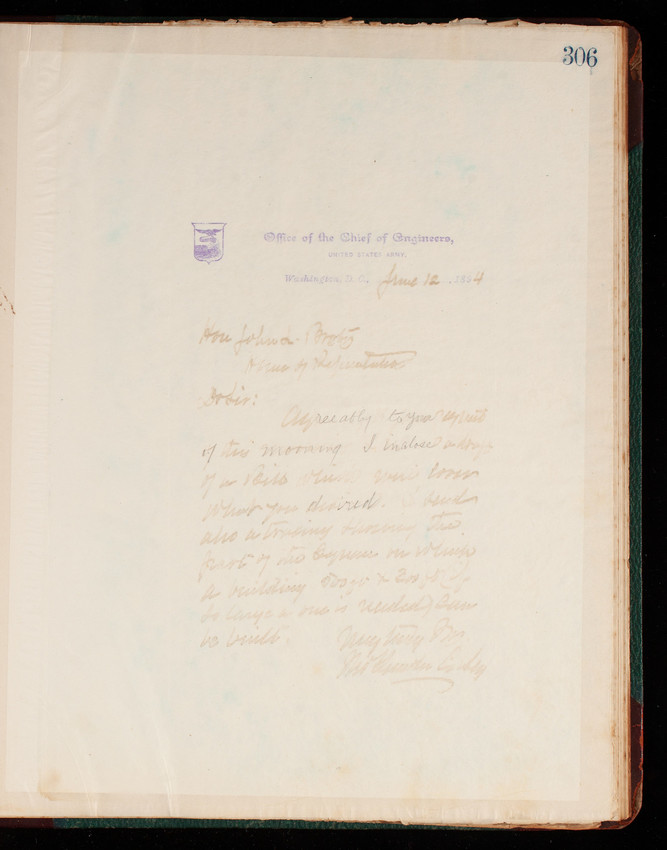 306
Office of the Chief of Engineers,
UNITED STATES ARMY.
Washington, D.C. June 12, 1894
Hon John
House of Representatives
Dr Sir:
Agreeably to your
of this morning I inclose a
of a Bill which will cover
what you desired. I send
also a tracing showing the
part of the Square on which
a building
so large a one is needed) can
be built.
Very truly Yrs
Thos Lincoln Casey